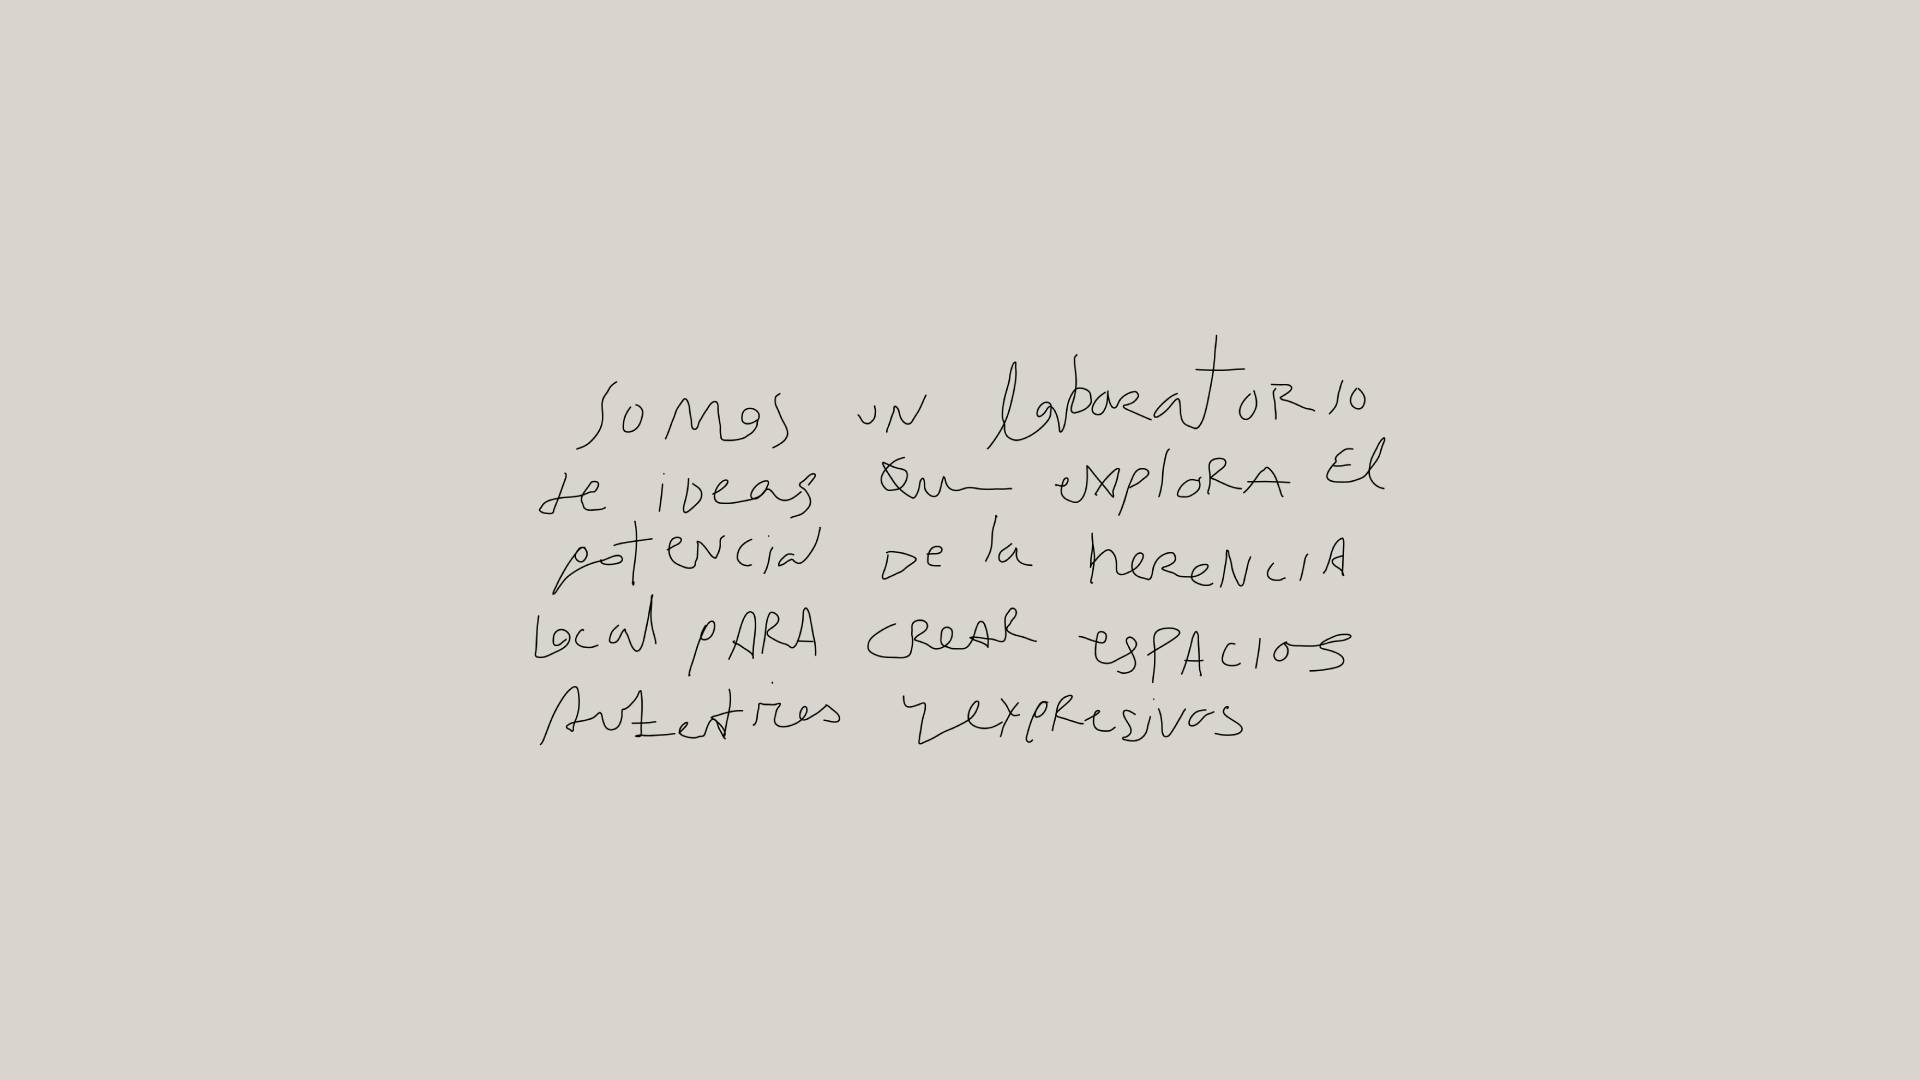 Somos un laboratorio
de ideas que explora el
potencial de la herencia
local para crear espacios
auténticos y expresivos